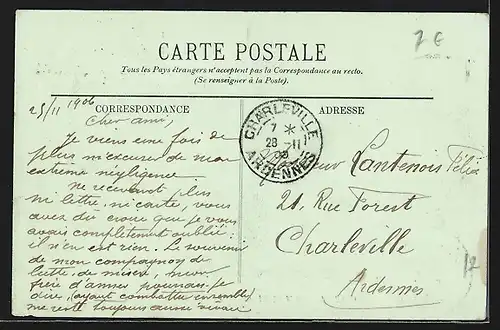 2 €
CARTE POSTALE
Tous les Pays étrangers n'acceptent pas la Correspondance au recto.
(Se renseigner à la Poste).
25/11 1906
CORRESPONDANCE
Cher ami,
Je viens une fois de
plus m'excuser de mon
extrême négligence
ne recevant plus
ni lettre, ni carte, vous
avez du croire que je vous
avais complètement oublié:
il n'en est rien. Le souvenir
de mon compagnon de
lutte, de misère, mon
frère d'armes pourrais-je
dire, (ayant combattu ensemble)
me reste toujours aussi vivace
CHARLEVILLE
7 *
28 -11
06
ARDENNES
ADRESSE
Monsieur Lantenois Félix
21, Rue Forest
Charleville
Ardennes